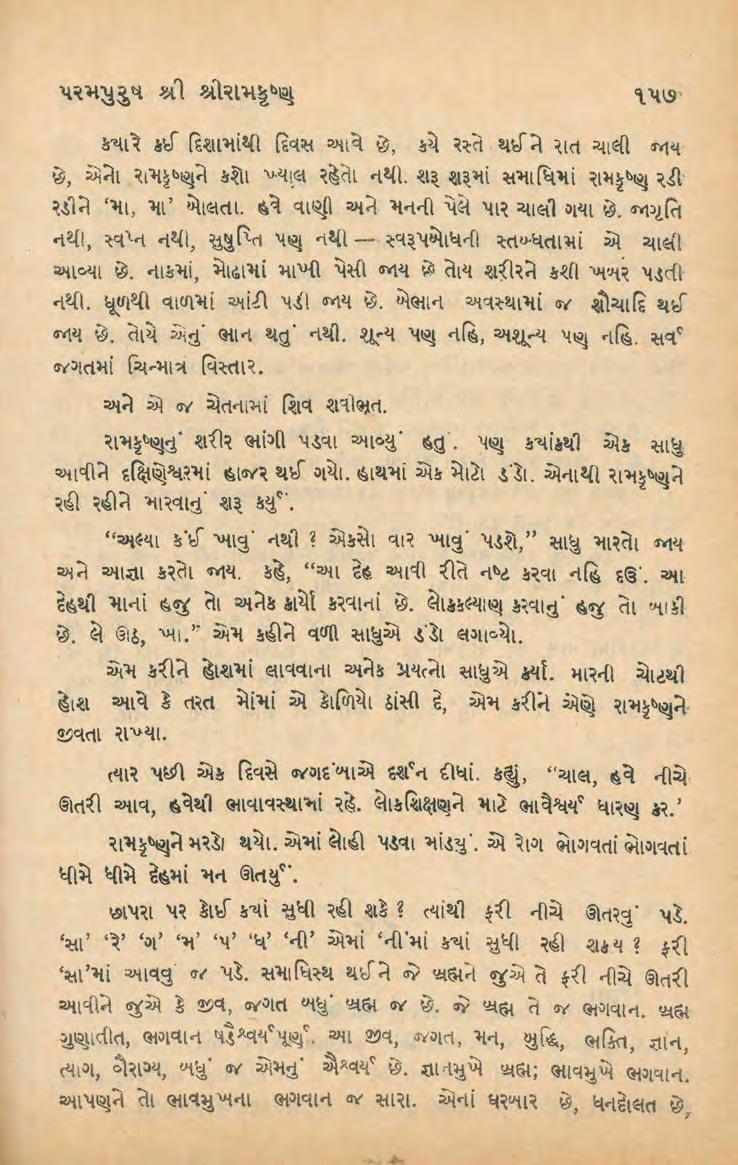 પરમપુરુષ શ્રી શ્રીરામકૃષ્ણ ૧૫૭
ક્યારે કઈ દિશામાંથી દિવસ આવે છે, કયે રસ્તે થઈને રાત ચાલી જાય
છે, એનો રામકૃષ્ણને કશો ખ્યાલ રહેતો નથી. શરૂ શરૂમાં સમાધિમાં રામકૃષ્ણ રડી
રડીને ‘મા, મા’ બોલતા. હવે વાણી અને મનની પેલે પાર ચાલી ગયા છે. જાગૃતિ
નથી, સ્વપ્ન નથી, સુષુપ્તિ પણ નથી — સ્વરૂપબોધની સ્તબ્ધતામાં એ ચાલી
આવ્યા છે. નાકમાં, મોઢામાં માખી પેસી જાય છે તોય શરીરને કશી ખબર પડતી
નથી. ધૂળથી વાળમાં આંટી પડી જાય છે. બેભાન અવસ્થામાં જ શૌચાદિ થઈ
જાય છે. તોયે એનું ભાન થતું નથી. શૂન્ય પણ નહિ, અશૂન્ય પણ નહિ. સર્વ
જગતમાં ચિન્માત્ર વિસ્તાર.
અને એ જ ચેતનામાં શિવ શવીભૂત.
રામકૃષ્ણનું શરીર ભાંગી પડવા આવ્યું હતું. પણ ક્યાંકથી એક સાધુ
આવીને દક્ષિણેશ્વરમાં હાજર થઈ ગયો. હાથમાં એક મોટો ડંડો. એનાથી રામકૃષ્ણને
રહી રહીને મારવાનું શરૂ કર્યું.
“અલ્યા કંઈ ખાવું નથી ? એકસો વાર ખાવું પડશે,” સાધુ મારતો જાય
અને આજ્ઞા કરતો જાય. કહે, “આ દેહ આવી રીતે નષ્ટ કરવા નહિ દઉં. આ
દેહથી માનાં હજુ તો અનેક કાર્યો કરવાનાં છે. લોકકલ્યાણ કરવાનું હજુ તો બાકી
છે. લે ઊઠ, ખા.” એમ કહીને વળી સાધુએ ડંડો લગાવ્યો.
એમ કરીને હોશમાં લાવવાના અનેક પ્રયત્નો સાધુએ કર્યા. મારની ચોટથી
હોશ આવે કે તરત મોંમાં એ કોળિયો ઠાંસી દે, એમ કરીને એણે રામકૃષ્ણને
જીવતા રાખ્યા.
ત્યાર પછી એક દિવસે જગદંબાએ દર્શન દીધાં. કહ્યું, “ચાલ, હવે નીચે
ઊતરી આવ, હવેથી ભાવાવસ્થામાં રહે. લોકશિક્ષણને માટે ભાવૈશ્વર્ય ધારણ કર.’
રામકૃષ્ણને મરડો થયો. એમાં લોહી પડવા માંડ્યું. એ રોગ ભોગવતાં ભોગવતાં
ધીમે ધીમે દેહમાં મન ઊતર્યું.
છાપરા પર કોઈ ક્યાં સુધી રહી શકે ? ત્યાંથી ફરી નીચે ઊતરવું પડે.
‘સા’ ‘રે’ ‘ગ’ ‘મ’ ‘પ’ ‘ધ’ ‘ની’ એમાં ‘ની’માં ક્યાં સુધી રહી શકાય ? ફરી
‘સા’માં આવવું જ પડે. સમાધિસ્થ થઈને જે બ્રહ્મને જુએ તે ફરી નીચે ઊતરી
આવીને જુએ કે જીવ, જગત બધું બ્રહ્મ જ છે. જે બ્રહ્મ તે જ ભગવાન. બ્રહ્મ
ગુણાતીત, ભગવાન ષડૈશ્વર્યપૂર્ણ. આ જીવ, જગત, મન, બુદ્ધિ, ભક્તિ, જ્ઞાન,
ત્યાગ, વૈરાગ્ય, બધું જ એમનું ઐશ્વર્ય છે. જ્ઞાનમુખે બ્રહ્મ; ભાવમુખે ભગવાન.
આપણને તો ભાવમુખના ભગવાન જ સારા. એનાં ઘરબાર છે, ધનદોલત છે,